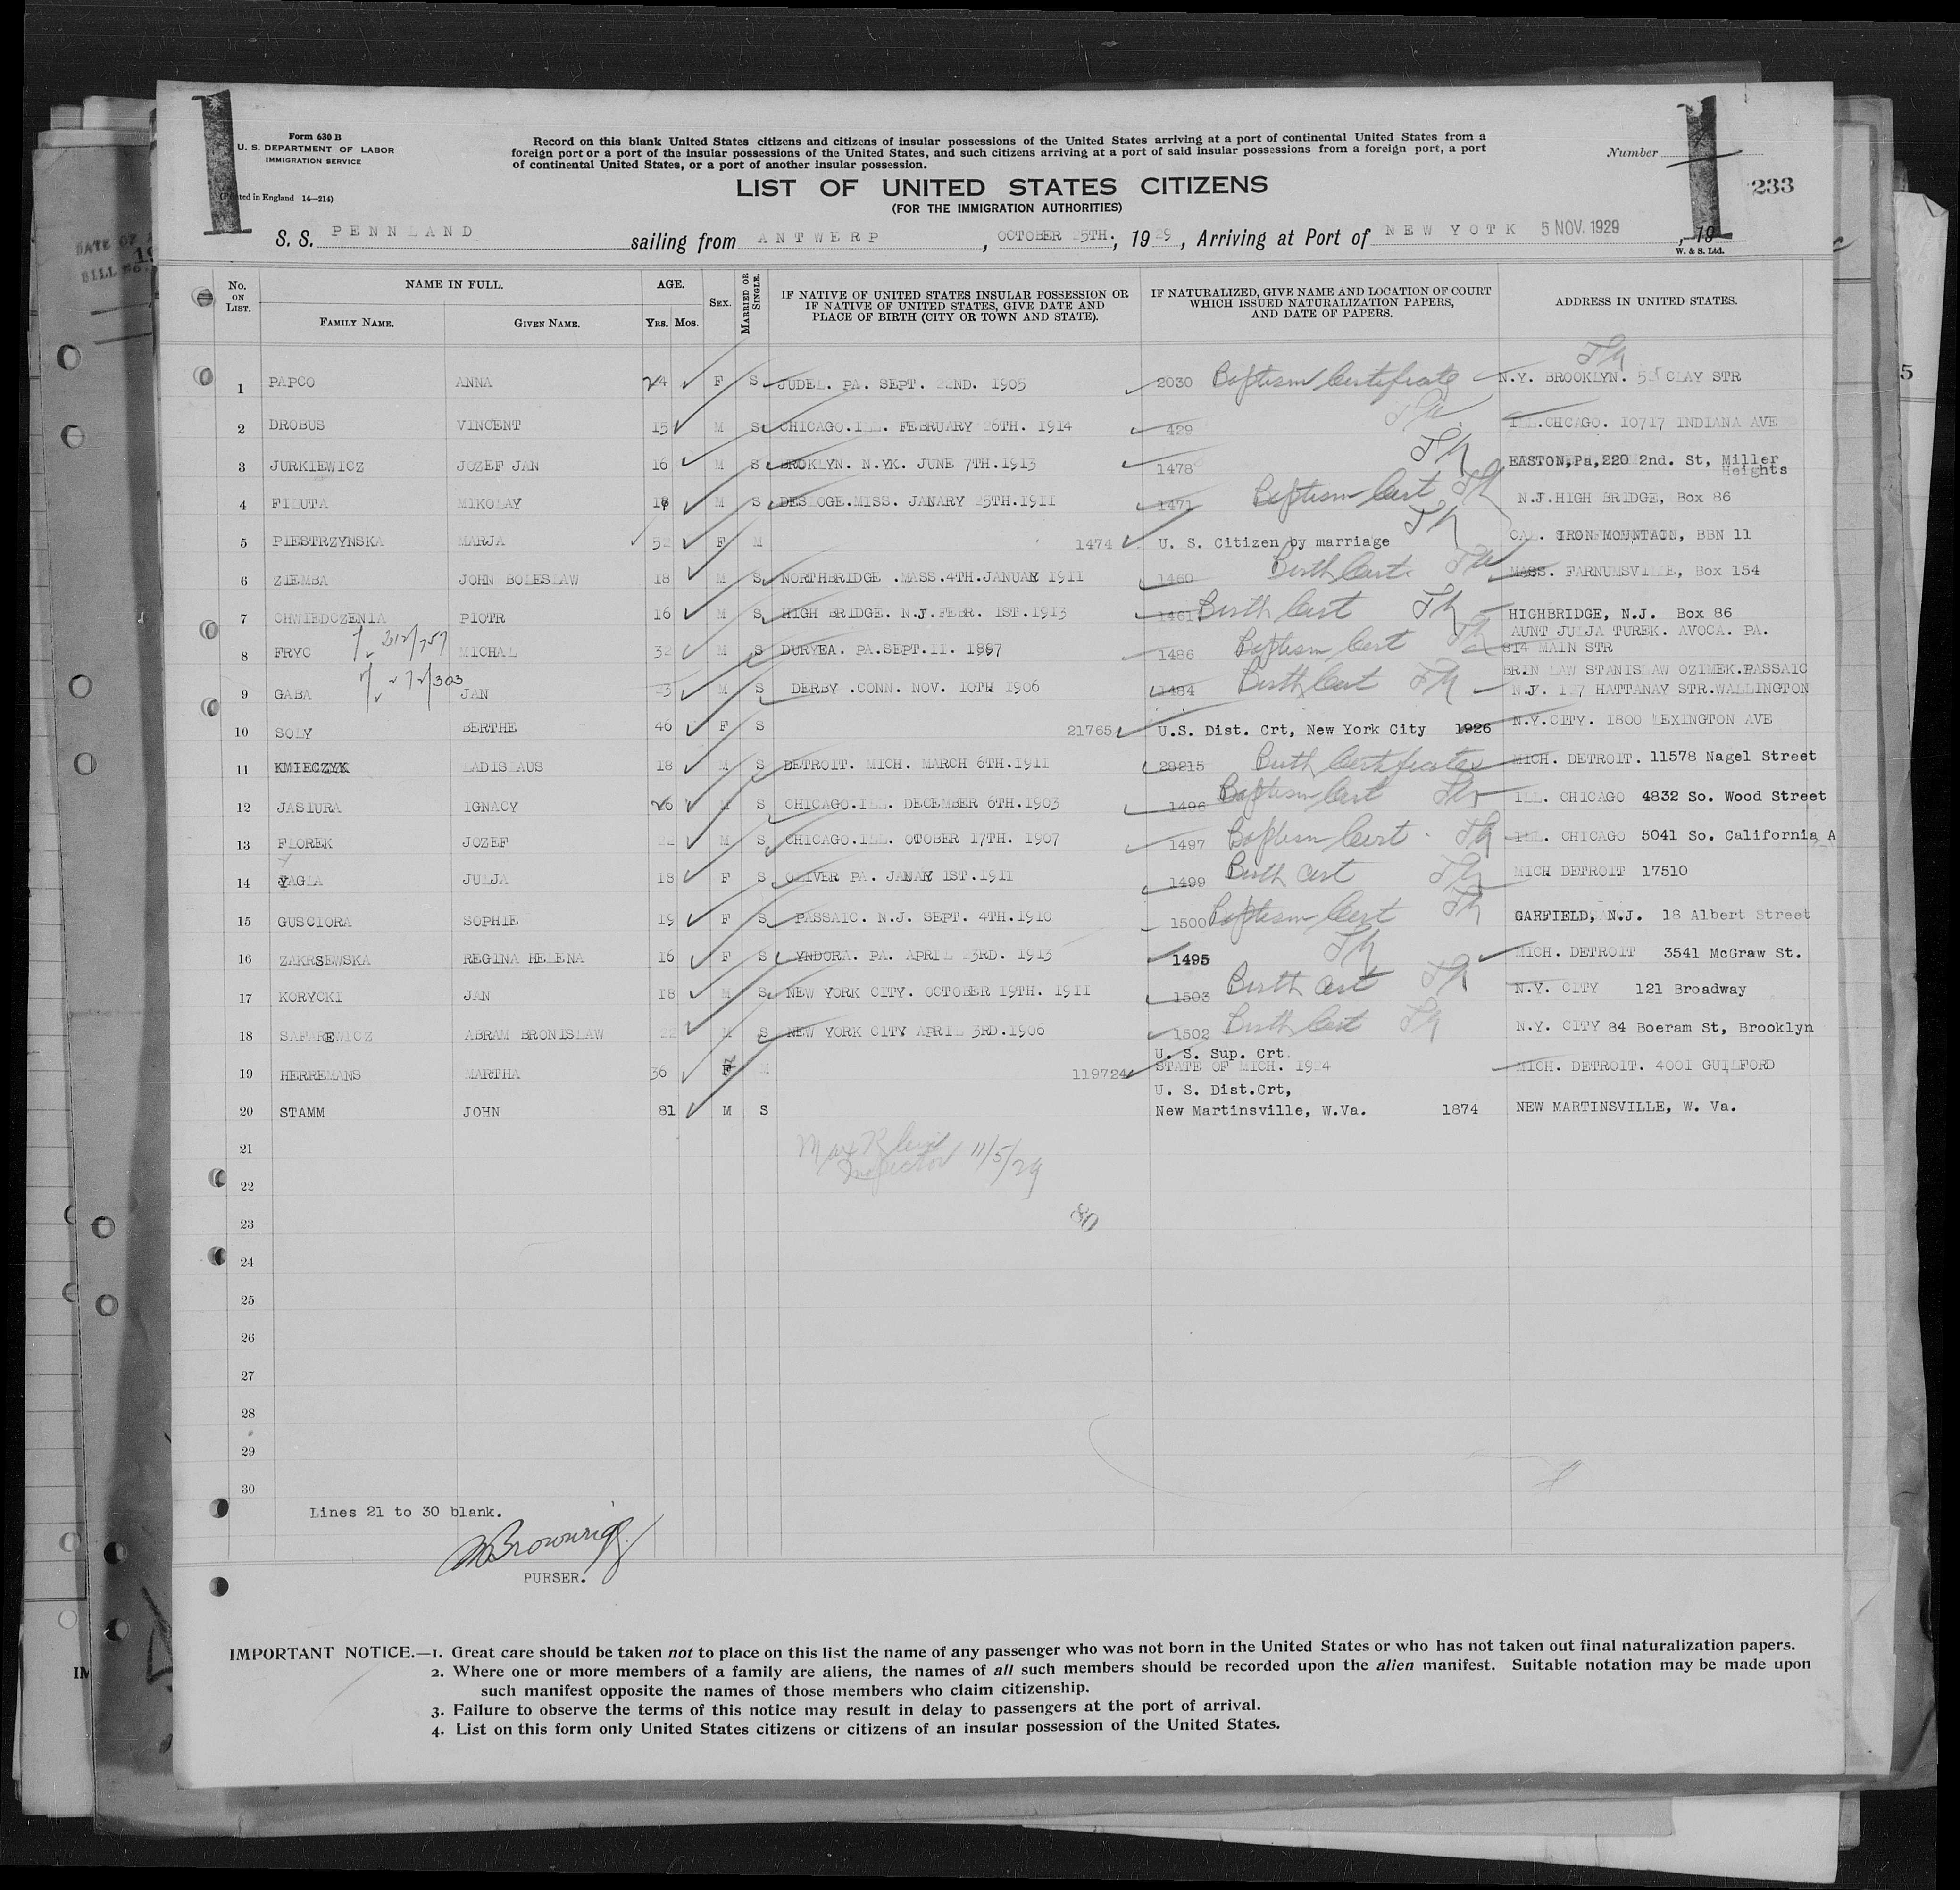 Form 630 B
U. S. DEPARTMENT OF LABOR
IMMIGRATION SERVICE
(Printed in England 14—214)
Record on this blank United States citizens and citizens of insular possessions of the United States arriving at a port of continental United States from a
foreign port or a port of the insular possessions of the United States, and such citizens arriving at a port of said insular possessions from a foreign port, a port
of continental United States, or a port of another insular possession.
Number
233
LIST OF UNITED STATES CITIZENS
(FOR THE IMMIGRATION AUTHORITIES)
S. S. PENNLAND sailing from ANTWERP, OCTOBER 25TH., 1929, Arriving at Port of NEW YOTK 5 NOV. 1929, 19
W. & S. Ltd.
No. ON LIST. NAME IN FULL. FAMILY NAME. GIVEN NAME. AGE. YRS. MOS. SEX. MARRIED OR SINGLE. IF NATIVE OF UNITED STATES INSULAR POSSESSION OR IF NATIVE OF UNITED STATES, GIVE DATE AND PLACE OF BIRTH (CITY OR TOWN AND STATE). IF NATURALIZED, GIVE NAME AND LOCATION OF COURT WHICH ISSUED NATURALIZATION PAPERS, AND DATE OF PAPERS. ADDRESS IN UNITED STATES.
1 PAPCO ANNA 24 F S JUDEL. PA. SEPT. 22ND. 1905 2030 Baptism Certificate N.Y. BROOKLYN. CLAY STR
2 DROBUS VINCENT 15 M S CHICAGO.ILL. FEBRUARY 26TH. 1914 429 ILL.CHCAGO. 10717 INDIANA AVE
3 JURKIEWICZ JOZEF JAN 16 M S BROKLYN. N.YK. JUNE 7TH.1913 1478 EASTON,Pa,220 2nd. St, Miller Heights
4 FILUTA MIKOLAY 18 M S DESLOGE.MISS. JANARY 25TH.1911 1471 Baptism Cert N.J.HIGH BRIDGE, Box 86
5 PIESTRZYNSKA MARJA 52 F M 1474 U. S. Citizen by marriage CAL. IRON MOUNTAIN, BBN 11
6 ZIEMBA JOHN BOLESLAW 18 M S NORTHBRIDGE .MASS.4TH.JANUAR 1911 1460 Birth Cert. MASS. FARNUMSVILLE, Box 154
7 CHWIEDCZENIA PIOTR 16 M S HIGH BRIDGE. N.J.FEBR. 1ST.1913 1461 Birth Cert HIGHBRIDGE, N.J. Box 86
8 FRYC 312/757 MICHAL 32 M S DURYEA. PA.SEPT.II. 1897 1486 Baptism Cert AUNT JULJA TUREK. AVOCA. PA. 814 MAIN STR
9 GABA 272/303 JAN 23 M S DERBY .CONN. NOV. 10TH 1906 1484 Birth Cert BRIN LAW STANISLAW OZIMEK.PASSAIC N.J. 127 HATTANAY STR.WALLINGTON
10 SOLY BERTHE 46 F S 21765 U.S. Dist. Crt, New York City 1926 N.Y.CITY. 1800 LEXINGTON AVE
11 KMIECZYK LADISLAUS 18 M S DETROIT. MICH. MARCH 6TH.1911 28215 Birth Certificate MICH. DETROIT. 11578 Nagel Street
12 JASIURA IGNACY 26 M S CHICAGO.ILL. DECEMBER 6TH.1903 1496 Baptism Cert ILL. CHICAGO 4832 So. Wood Street
13 FLOREK JOZEF 22 M S CHICAGO.ILL. OTOBER 17TH. 1907 1497 Baptism Cert. ILL. CHICAGO 5041 So. California A
14 YAGLA JULJA 18 F S OLIVER PA. 1ST.1911 1499 Birth Cert MICH DETROIT 17510
15 GUSCIORA SOPHIE 19 F S PASSAIC. N.J. SEPT. 4TH.1910 1500 Baptism Cert GARFIELD, N.J. 18 Albert Street
16 ZAKRSEWSKA REGINA HELENA 16 F S LYNDORA. PA. APRIL 23RD. 1913 1495 MICH. DETROIT 3541 McGraw St.
17 KORYCKI JAN 18 M S NEW YORK CITY. OCTOBER 19TH. 1911 1503 Birth Cert N.Y. CITY 121 Broadway
18 SAFAREWICZ ABRAM BRONISLAW 22 M S NEW YORK CITY APRIL 3RD.1906 1502 Birth Cert N.Y. CITY 84 Boeram St, Brooklyn
19 HERREMANS MARTHA 36 F M 119724 U. S. Sup. Crt. STATE OF MICH. 1924 MICH. DETROIT. 4001 GUILFORD
20 STAMM JOHN 81 M S U. S. Dist.Crt, New Martinsville, W.Va. 1874 NEW MARTINSVILLE, W. Va.
21
Inspector 11/5/29
22
23
80
24
25
26
27
28
29
30
Lines 21 to 30 blank.
PURSER.
IMPORTANT NOTICE.—1. Great care should be taken not to place on this list the name of any passenger who was not born in the United States or who has not taken out final naturalization papers.
2. Where one or more members of a family are aliens, the names of all such members should be recorded upon the alien manifest. Suitable notation may be made upon
such manifest opposite the names of those members who claim citizenship.
3. Failure to observe the terms of this notice may result in delay to passengers at the port of arrival.
4. List on this form only United States citizens or citizens of an insular possession of the United States.